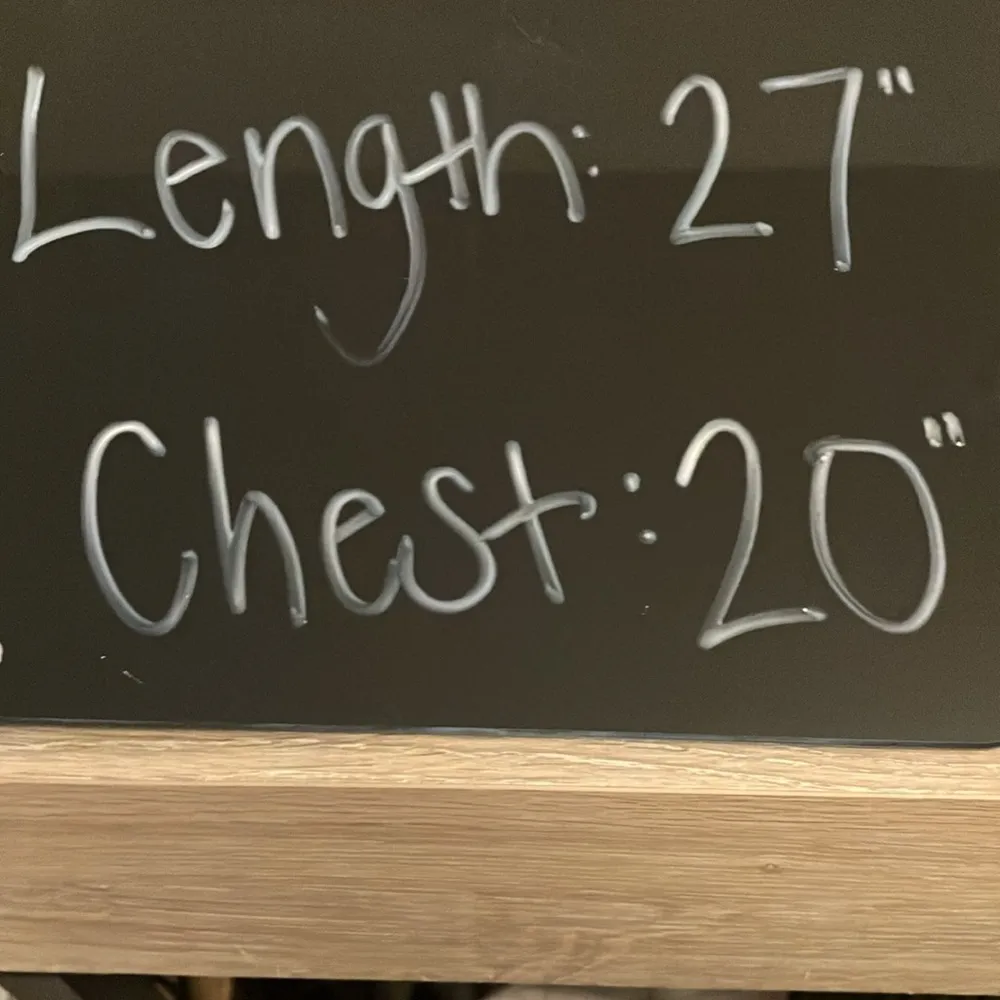 Length: 27"
Chest: 20"